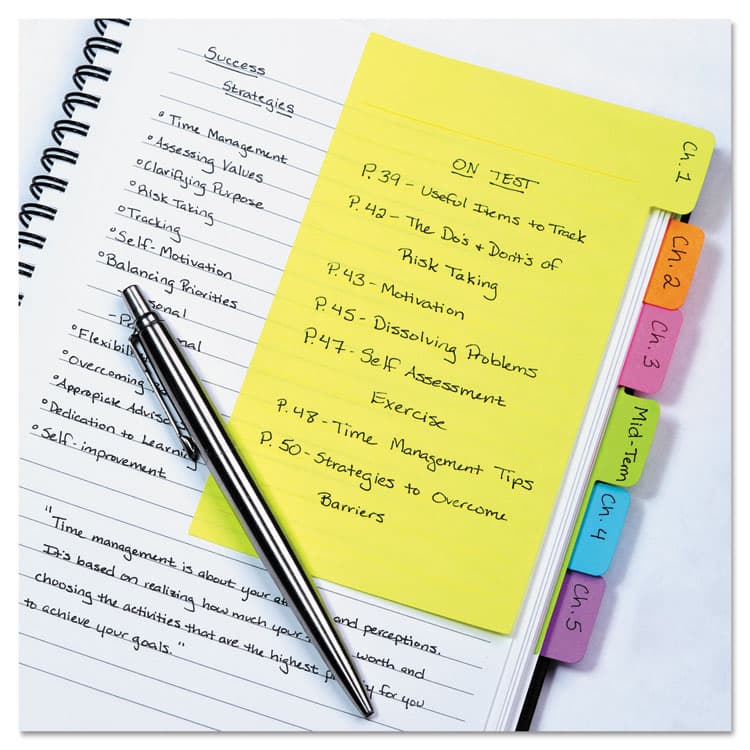 Success
Strategies
° Time Management
° Assessing Values
° Clarifying Purpose
° Risk Taking
° Tracking
° Self-Motivation
° Balancing Priorities
° Overcoming
° Dedication to Learning
° Self-improvement
"Time management is about your and perceptions.
It's based on realizing how much your worth and
choosing the activities that are the highest for you
to achieve your goals."
ON TEST
P. 39 - Useful Items to Track
P. 42 - The Do's + Dont's of
Risk Taking
P. 43 - Motivation
P. 45 - Dissolving Problems
P. 47 - Self Assessment
Exercise
P. 48 - Time Management Tips
P. 50 - Strategies to Overcome
Barriers
Ch. 1
Ch. 2
Ch. 3
Mid-Term
Ch. 4
Ch. 5